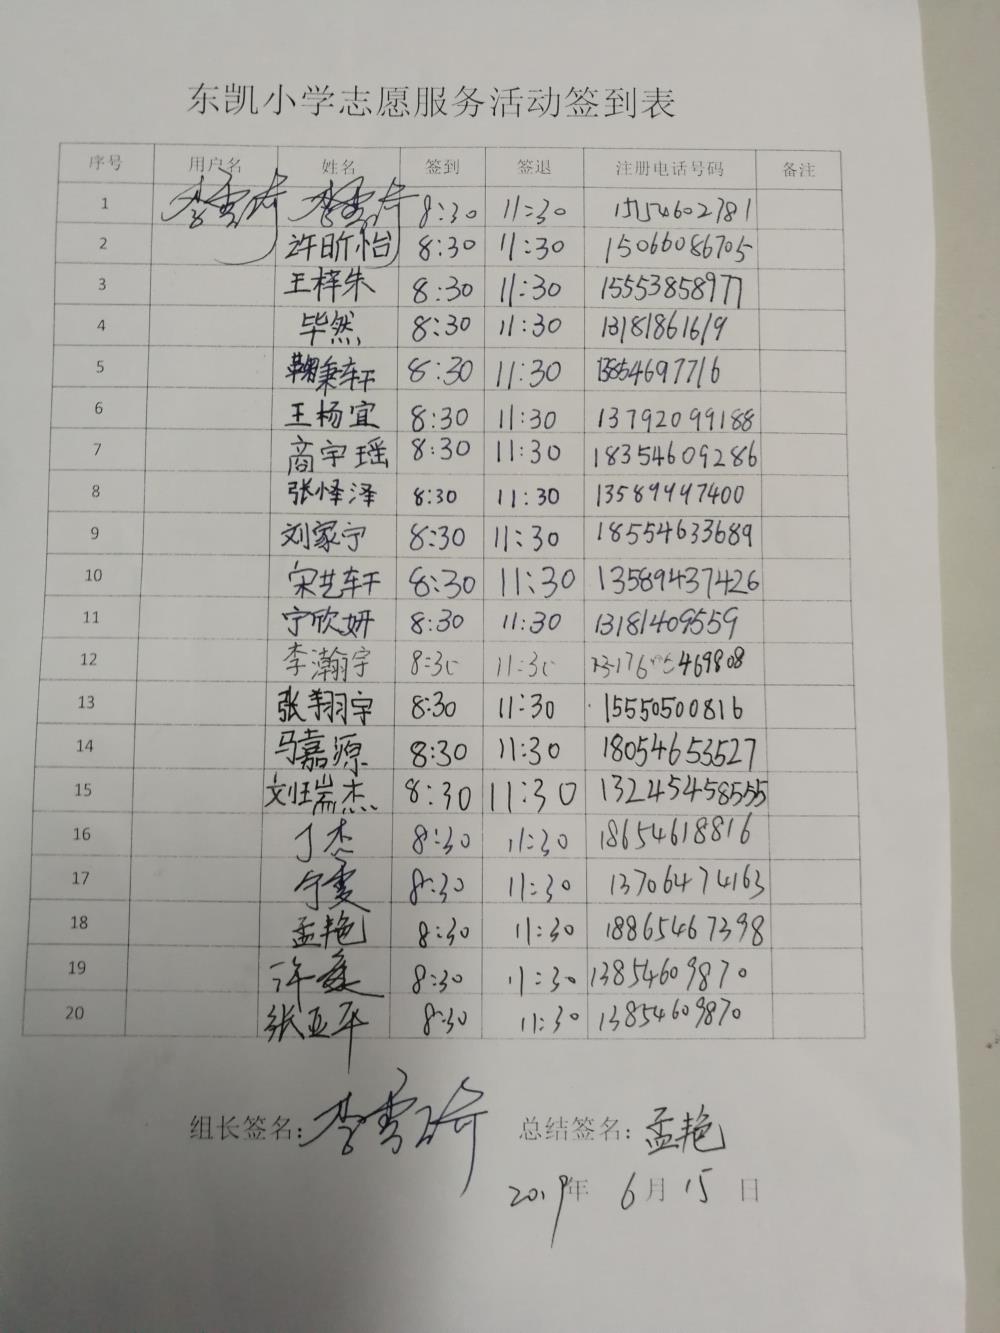 东凯小学志愿服务活动签到表
序号 用户名 姓名 签到 签退 注册电话号码 备注
1 李雪琦 李雪琦 8:30 11:30 15154602781
2 许昕怡 8:30 11:30 15066086705
3 王梓朱 8:30 11:30 15553858977
4 毕然 8:30 11:30 13181861619
5 鞠秉轩 8:30 11:30 13854697716
6 王杨宜 8:30 11:30 13792099188
7 商宇瑶 8:30 11:30 18354609286
8 张怿泽 8:30 11:30 13589997400
9 刘家宁 8:30 11:30 18554633689
10 宋艺轩 8:30 11:30 13589437426
11 宁欣妍 8:30 11:30 13181409559
12 李瀚宇 8:30 11:30
13 张翔宇 8:30 11:30 15550500816
14 马嘉源 8:30 11:30 18054653527
15 刘珏瑞杰 8:30 11:30 13245458555
16 丁杰 8:30 11:30 18654618816
17 宁雯 8:30 11:30 13706474163
18 孟艳 8:30 11:30 18865467398
19 许 8:30 11:30 13854609870
20 张亚平 8:30 11:30 13854609870
组长签名：李雪琦 总结签名：孟艳
2019年 6月 15日